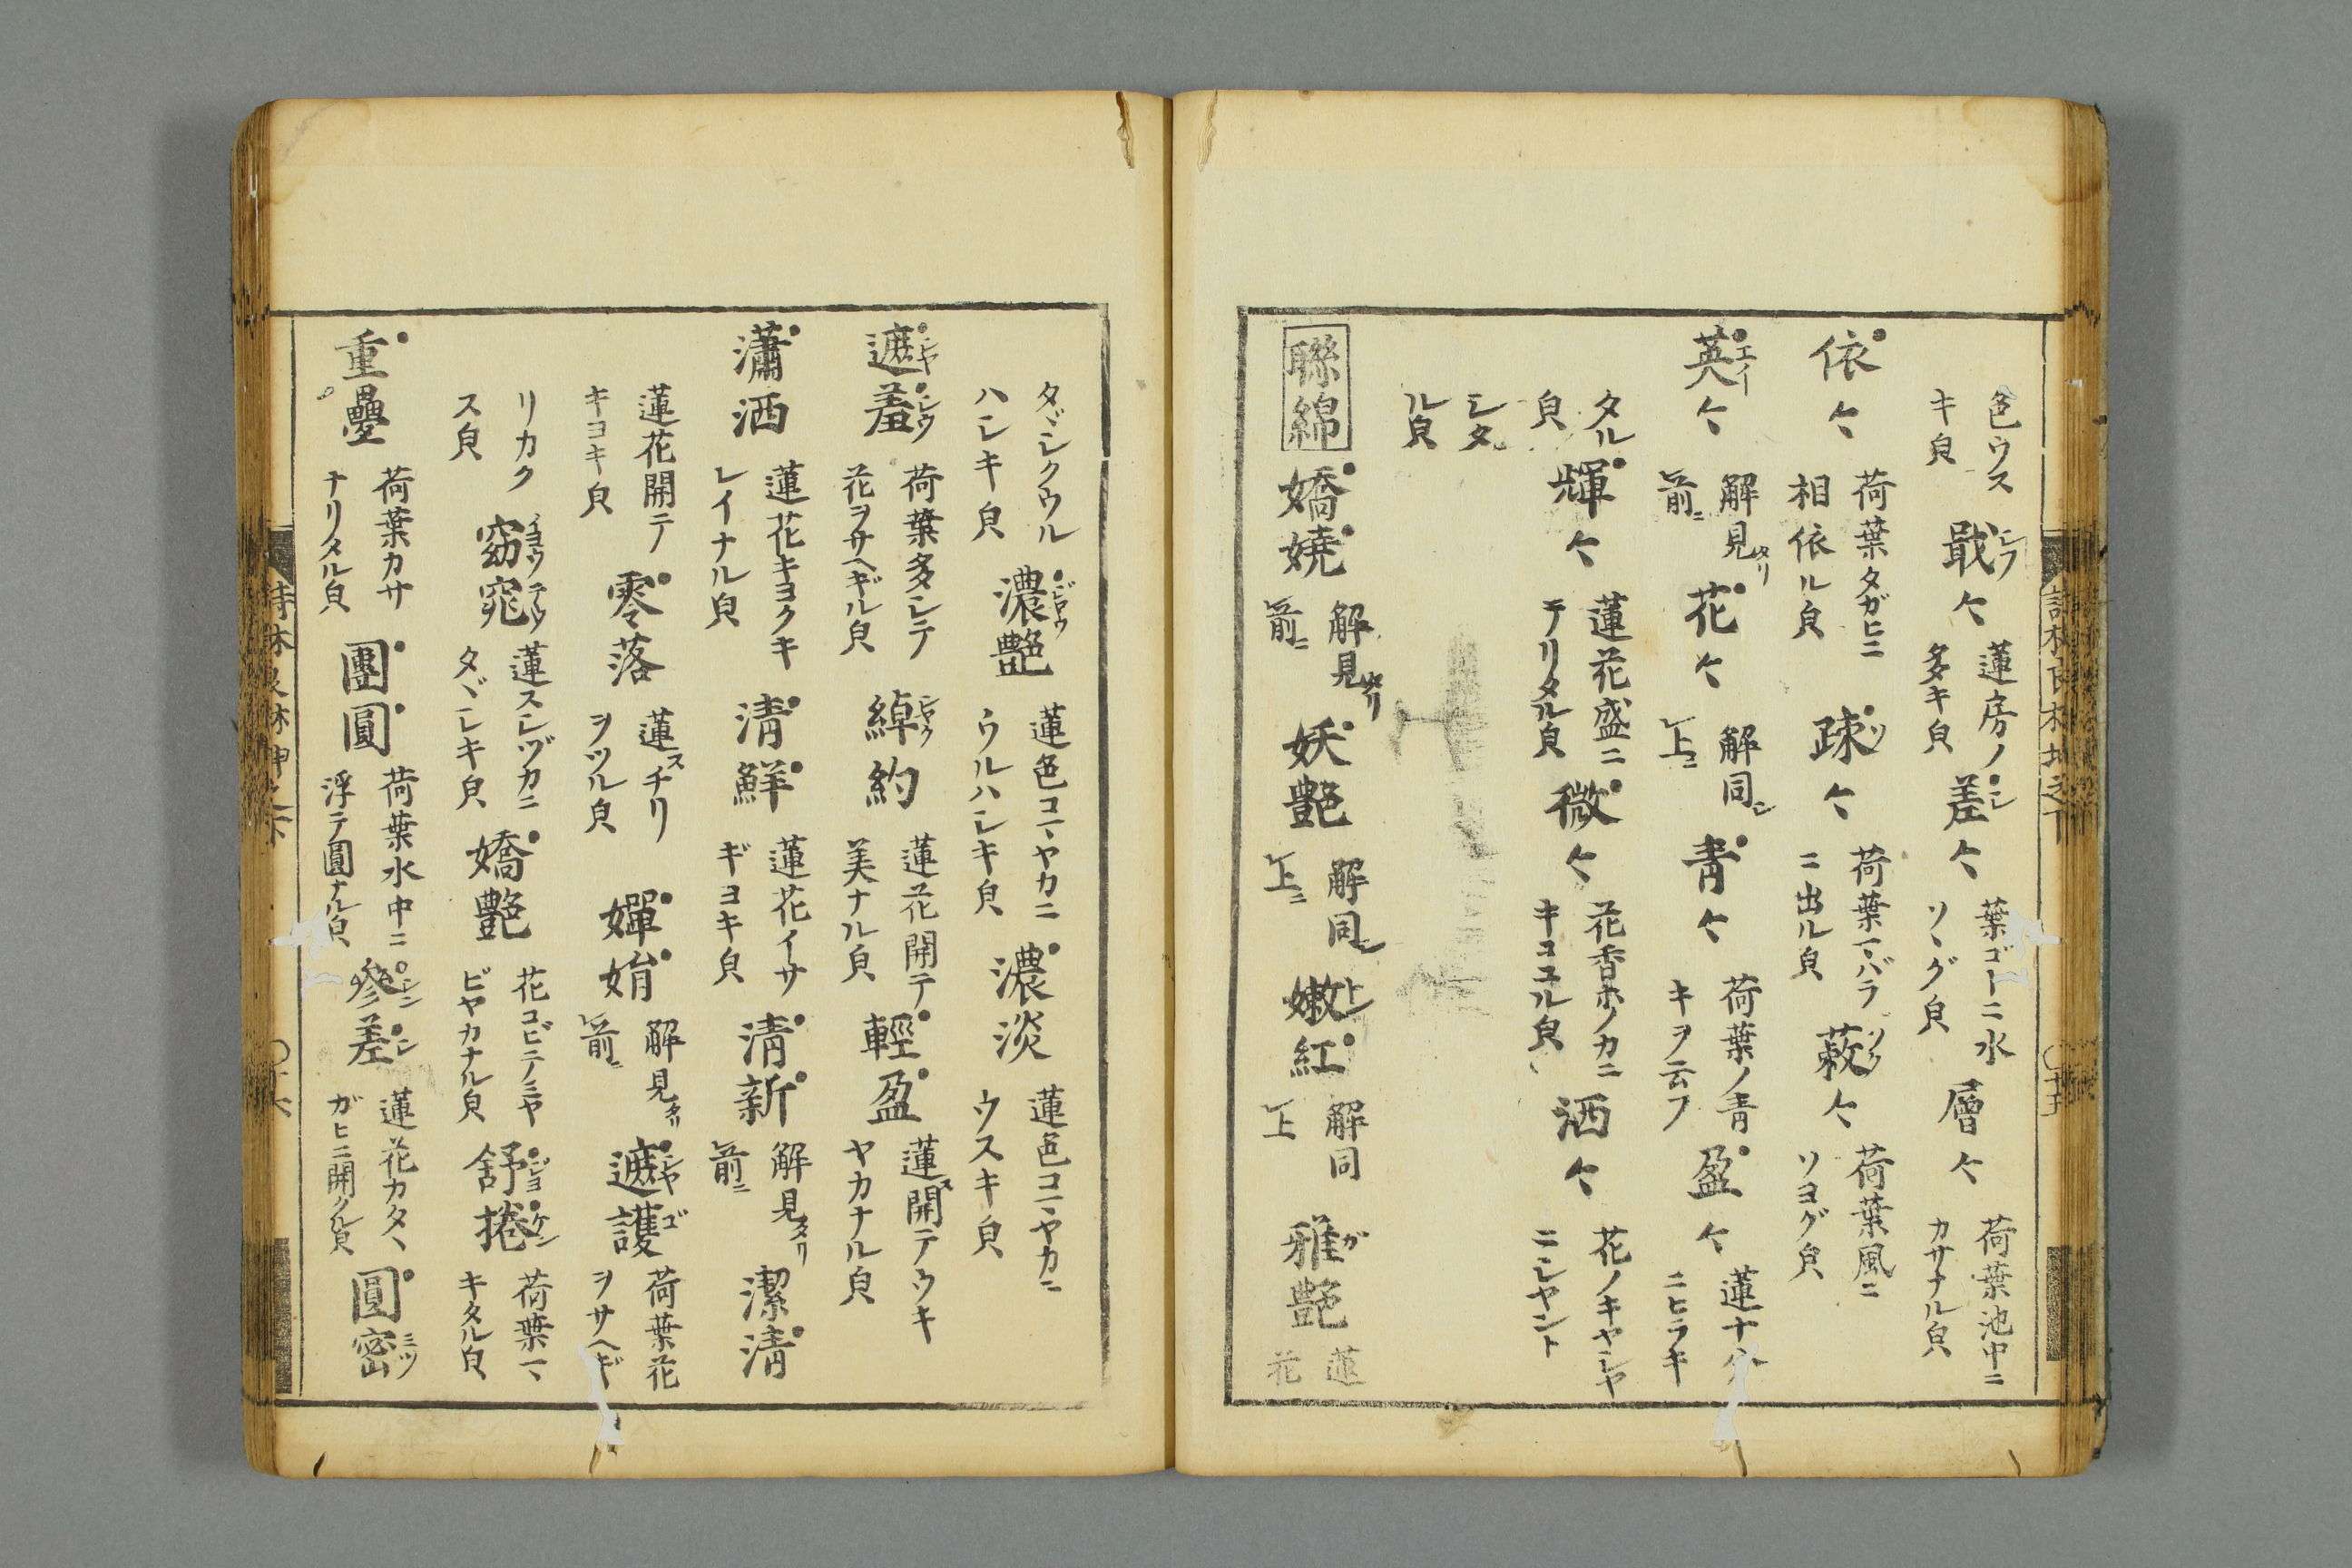 色ウス
キ皃
戢〻
蓮房ノ
多キ皃
差〻
葉ゴトニ水
ソヽグ皃
層〻
荷葉池中ニ
カサナル皃
依〻
荷葉タガヒニ
相依ル皃
疎〻
荷葉マバラ
ニ出ル皃
蔌〻
荷葉風ニ
ソヨグ皃
英〻
解見タリ
前ニ
花〻
解同シ
上ニ
青〻
荷葉ノ青
キヲ云フ
盈〻
蓮十分
ニヒラキ
タル
皃
輝〻
蓮花盛ニ
テリタル皃
微〻
花香ホノカニ
キコユル皃
洒〻
花ノキヤシヤ
ニシヤント
シタ
ル皃
聯綿
嬌嬈
解見タリ
前ニ
妖艶
解同シ
上ニ
嫩紅
解同
上
雅艶
蓮
花
タヾシクウル
ハシキ皃
濃艶
蓮色コマヤカニ
ウルハシキ皃
濃淡
蓮色コマヤカニ
ウスキ皃
遮羞
荷葉多シテ
花ヲサヘギル皃
綽約
蓮花開テ
美ナル皃
輕盈
蓮開テウキ
ヤカナル皃
瀟洒
蓮花キヨクキ
レイナル皃
淸鮮
蓮花イサ
ギヨキ皃
淸新
解見タリ
前ニ
潔淸
蓮花開テ
キヨキ皃
零落
蓮スチリ
ヲツル皃
嬋娟
解見タリ
前ニ
遮護
荷葉花
ヲサヘギ
リカク
ス皃
窈窕
蓮スシヅカニ
タヾシキ皃
嬌艶
花コビテミヤ
ビヤカナル皃
舒捲
荷葉マ
キタル皃
重疊
荷葉カサ
ナリタル皃
團圓
荷葉水中ニ
浮テ圓ナル皃
參差
蓮花カタヽ
ガヒニ開クル皃
圓密